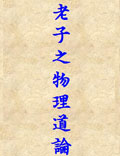 老子之物理道論